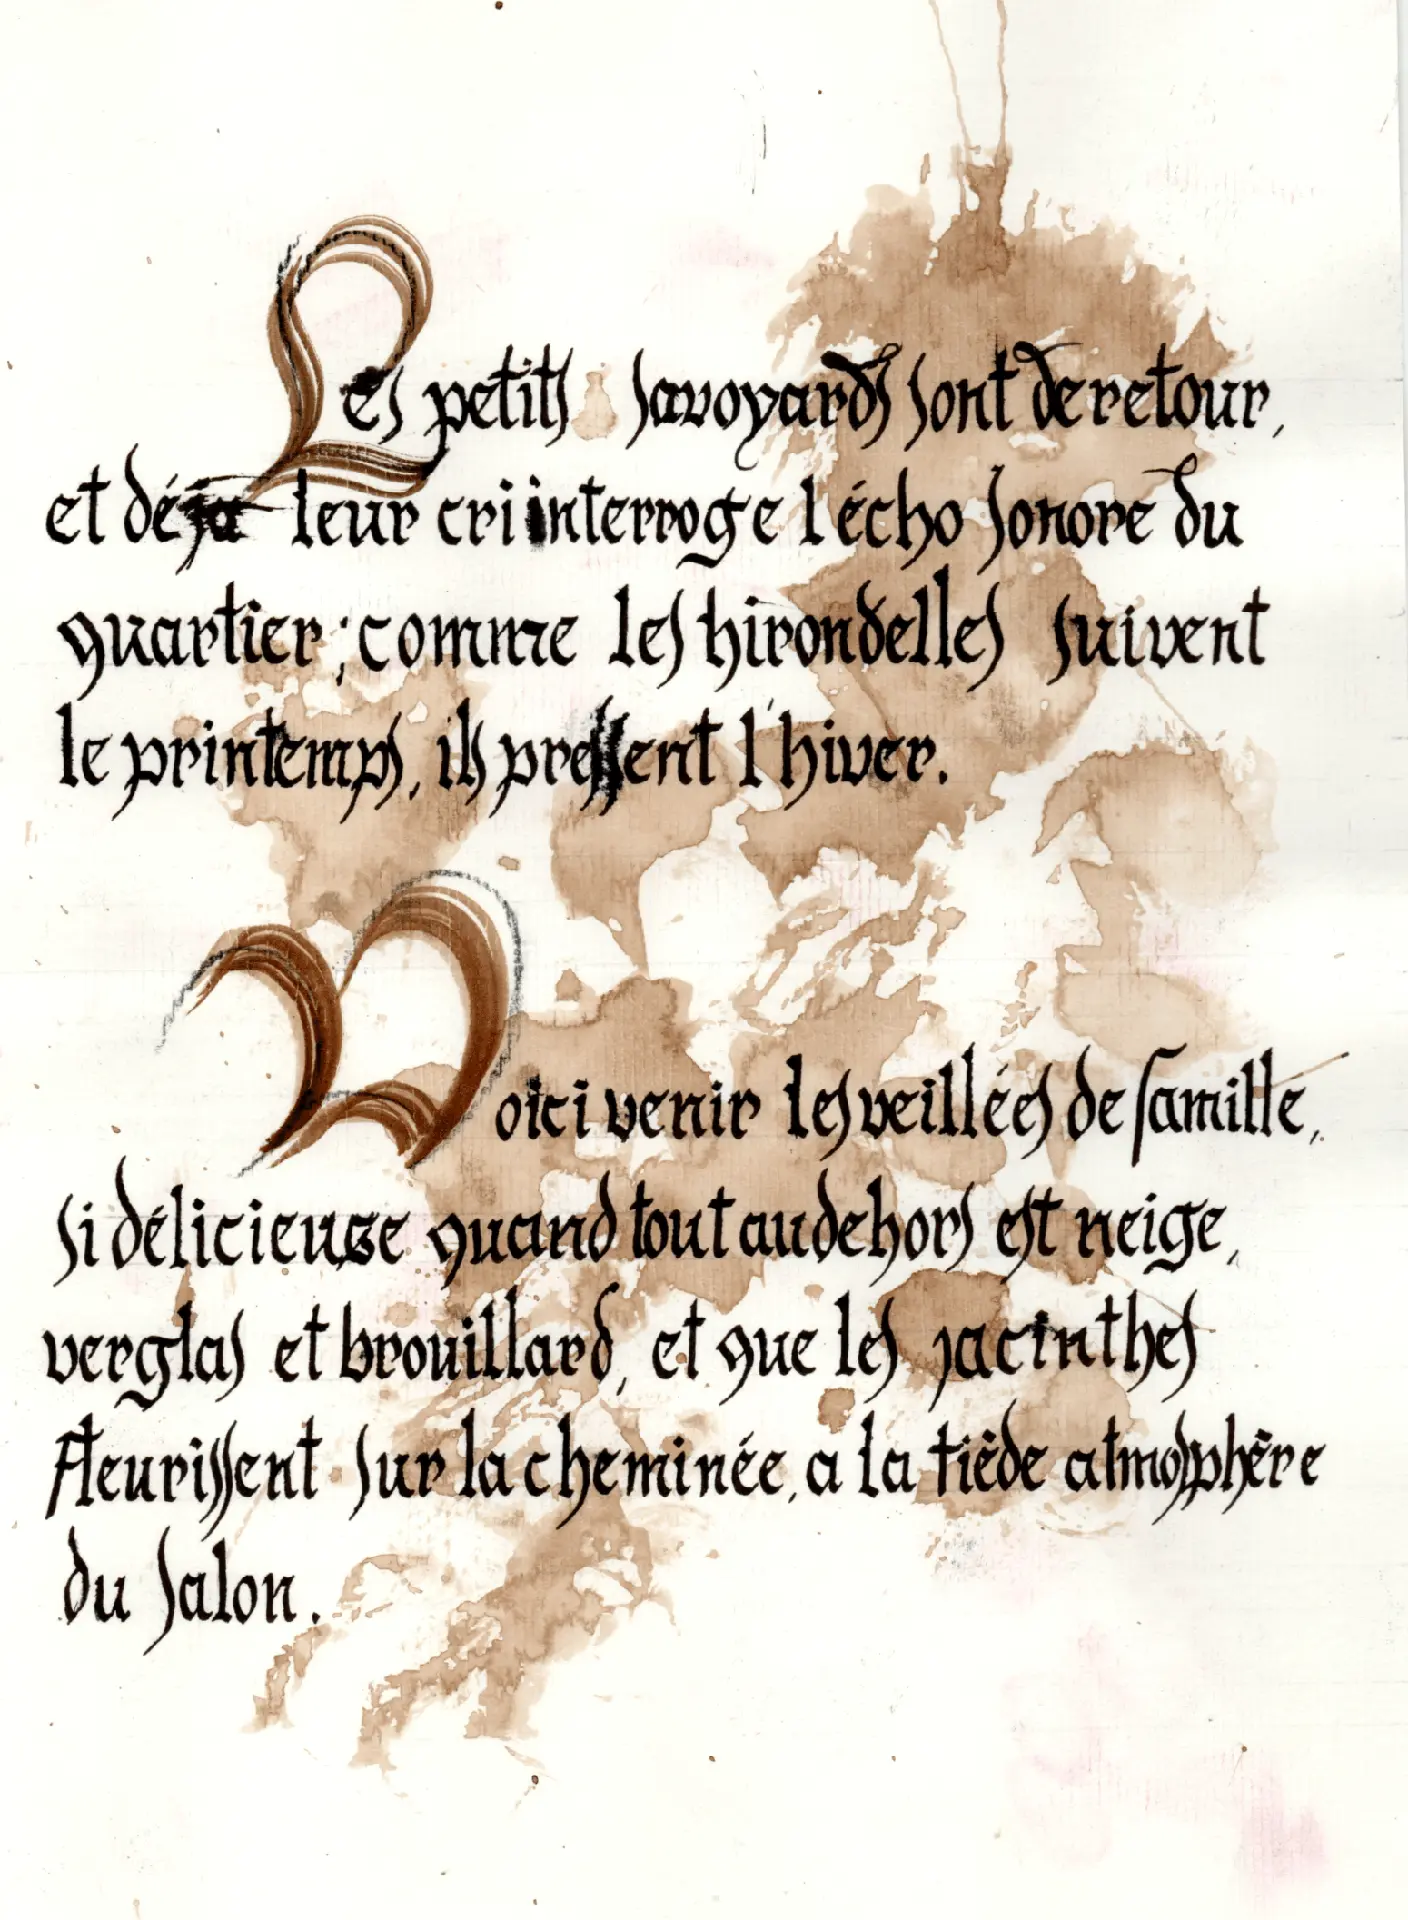 Les petits savoyards sont de retour,
et déja leur cri interroge l'écho sonore du
quartier ; comme les hirondelles suivent
le printemps, ils pressent l'hiver.
Voici venir les veillées de famille,
si délicieuse quand tout au dehors est neige,
verglas et brouillard, et que les jacinthes
fleurissent sur la cheminée, a la tiède atmosphère
du salon.